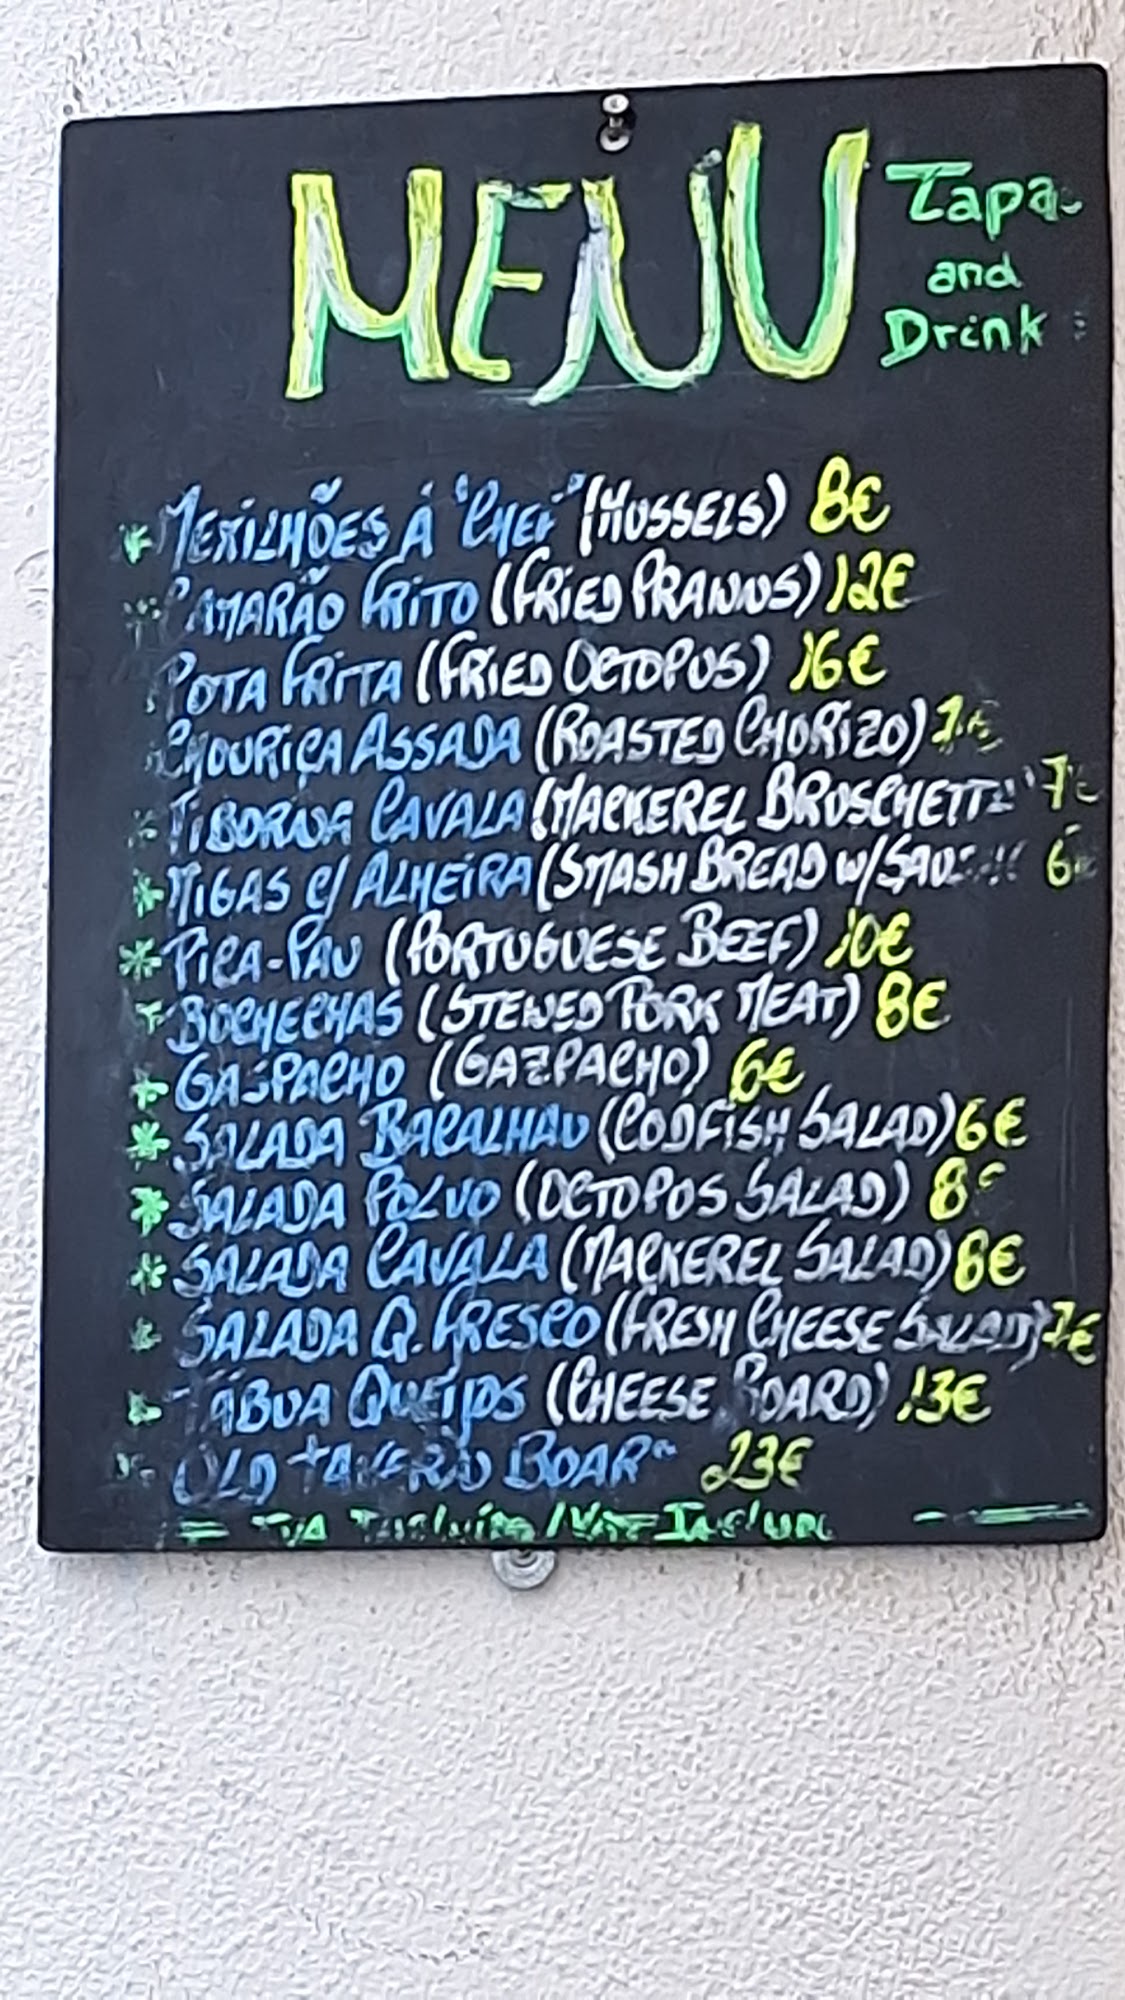 MENU
Tapas
and
Drink
* MEXILHÕES Á "CHEF" (MUSSELS) 8€
* CAMARÃO FRITO (FRIED PRAWNS) 12€
POTA FRITA (FRIED OCTOPUS) 16€
CHOURIÇA ASSADA (ROASTED CHORIZO)
* TIBORNA CAVALA (MACKEREL BRUSCHETTA) 7€
* MIGAS C/ ALHEIRA (SMASH BREAD W/ 6€
* PICA-PAU (PORTUGUESE BEEF) 10€
* BOCHECHAS (STEWED PORK MEAT) 8€
* GASPACHO (GAZPACHO) 6€
* SALADA BACALHAU (CODFISH SALAD) 6€
* SALADA POLVO (OCTOPUS SALAD) 8€
* SALADA CAVALA (MACKEREL SALAD) 8€
* SALADA Q. FRESCO (FRESH CHEESE SALAD) 7€
* TÁBUA QUEIJOS (CHEESE BOARD) 13€
* OLD TAVERN BOARD 23€